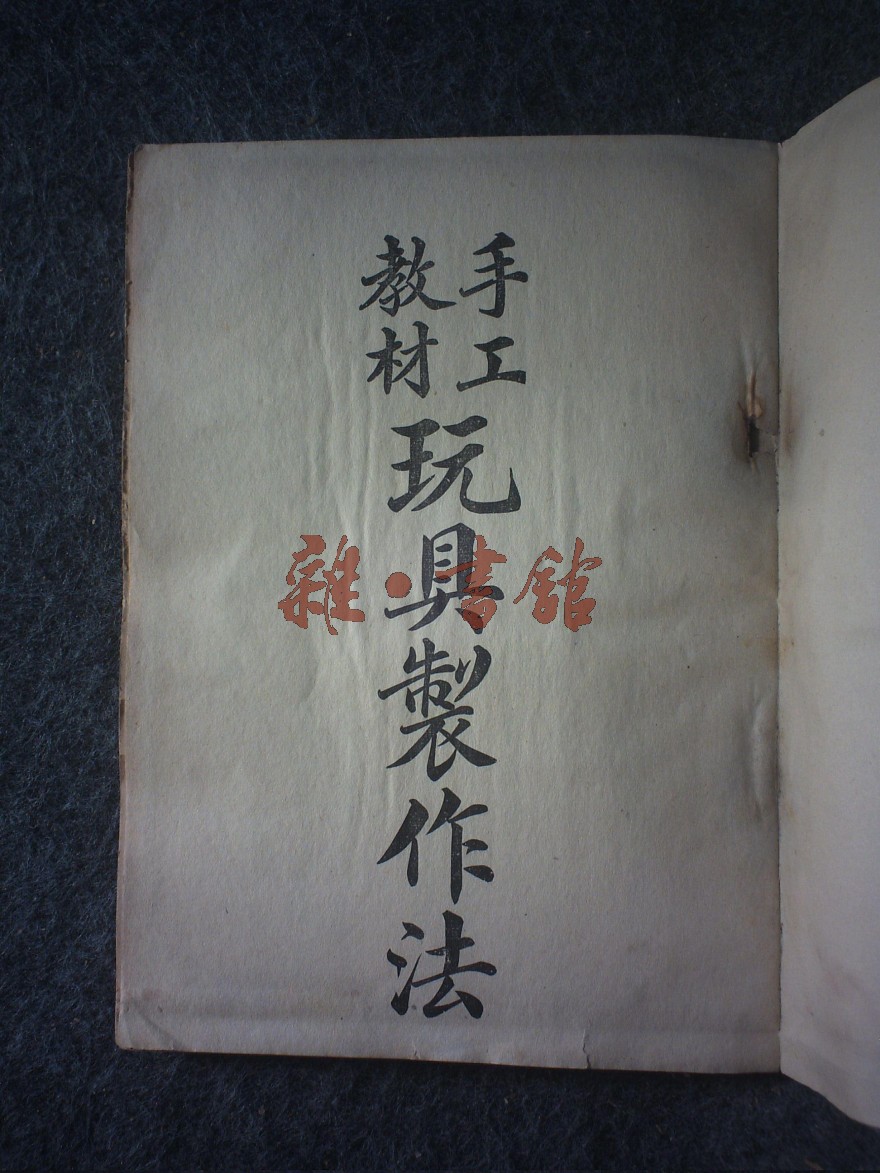 手工
教材
玩具製作法
雜·書館